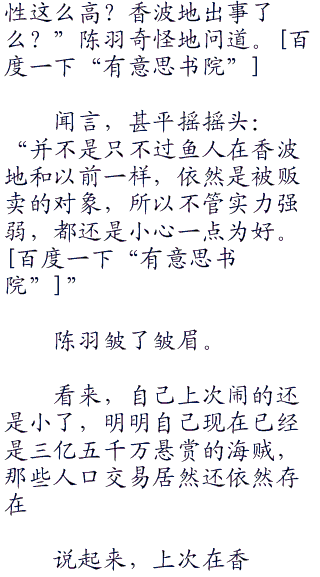 性这么高？香波地出事了
么？”陈羽奇怪地问道。[百
度一下“有意思书院”]
闻言，甚平摇摇头：
“并不是只不过鱼人在香波
地和以前一样，依然是被贩
卖的对象，所以不管实力强
弱，都还是小心一点为好。
[百度一下“有意思书
院”]”
陈羽皱了皱眉。
看来，自己上次闹的还
是小了，明明自己现在已经
是三亿五千万悬赏的海贼，
那些人口交易居然还依然存
在
说起来，上次在香